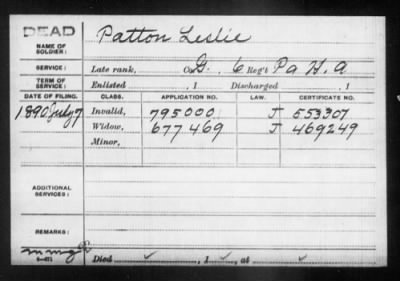 DEAD
NAME OF SOLDIER: Patton Leslie
SERVICE: Late rank, Co. G. 6 Reg't Pa H. a
TERM OF SERVICE: Enlisted , 1 Discharged , 1
DATE OF FILING. CLASS. APPLICATION NO. LAW. CERTIFICATE NO.
1890 July 7 Invalid, 795000 J 553307
Widow, 677469 J 469249
Minor,
ADDITIONAL SERVICES:
REMARKS:
Died ✓, 1 ✓, at ✓